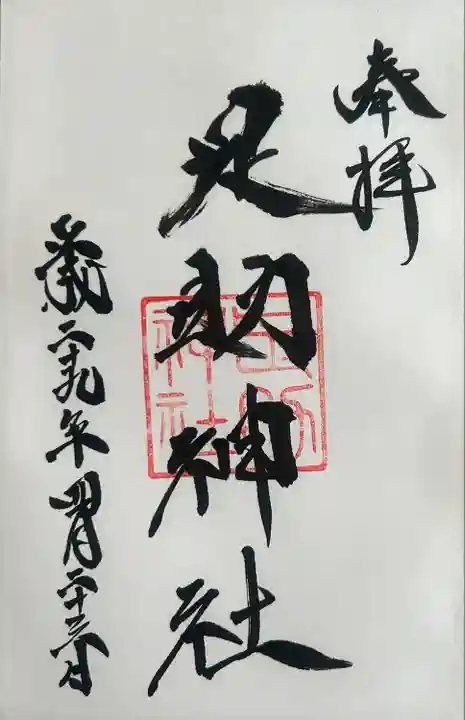 奉拝
足助神社
足助
神社
平成二十九年四月二十三日